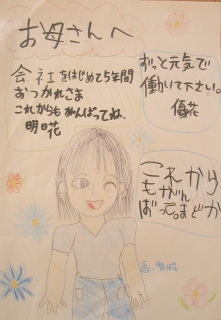 お母さんへ
会社をはじめて5年間
おつかれさま
これからもがんばってね。
明日花
ずっと元気で
働いて下さい。
優花
これから
もがん
ばって。まどか